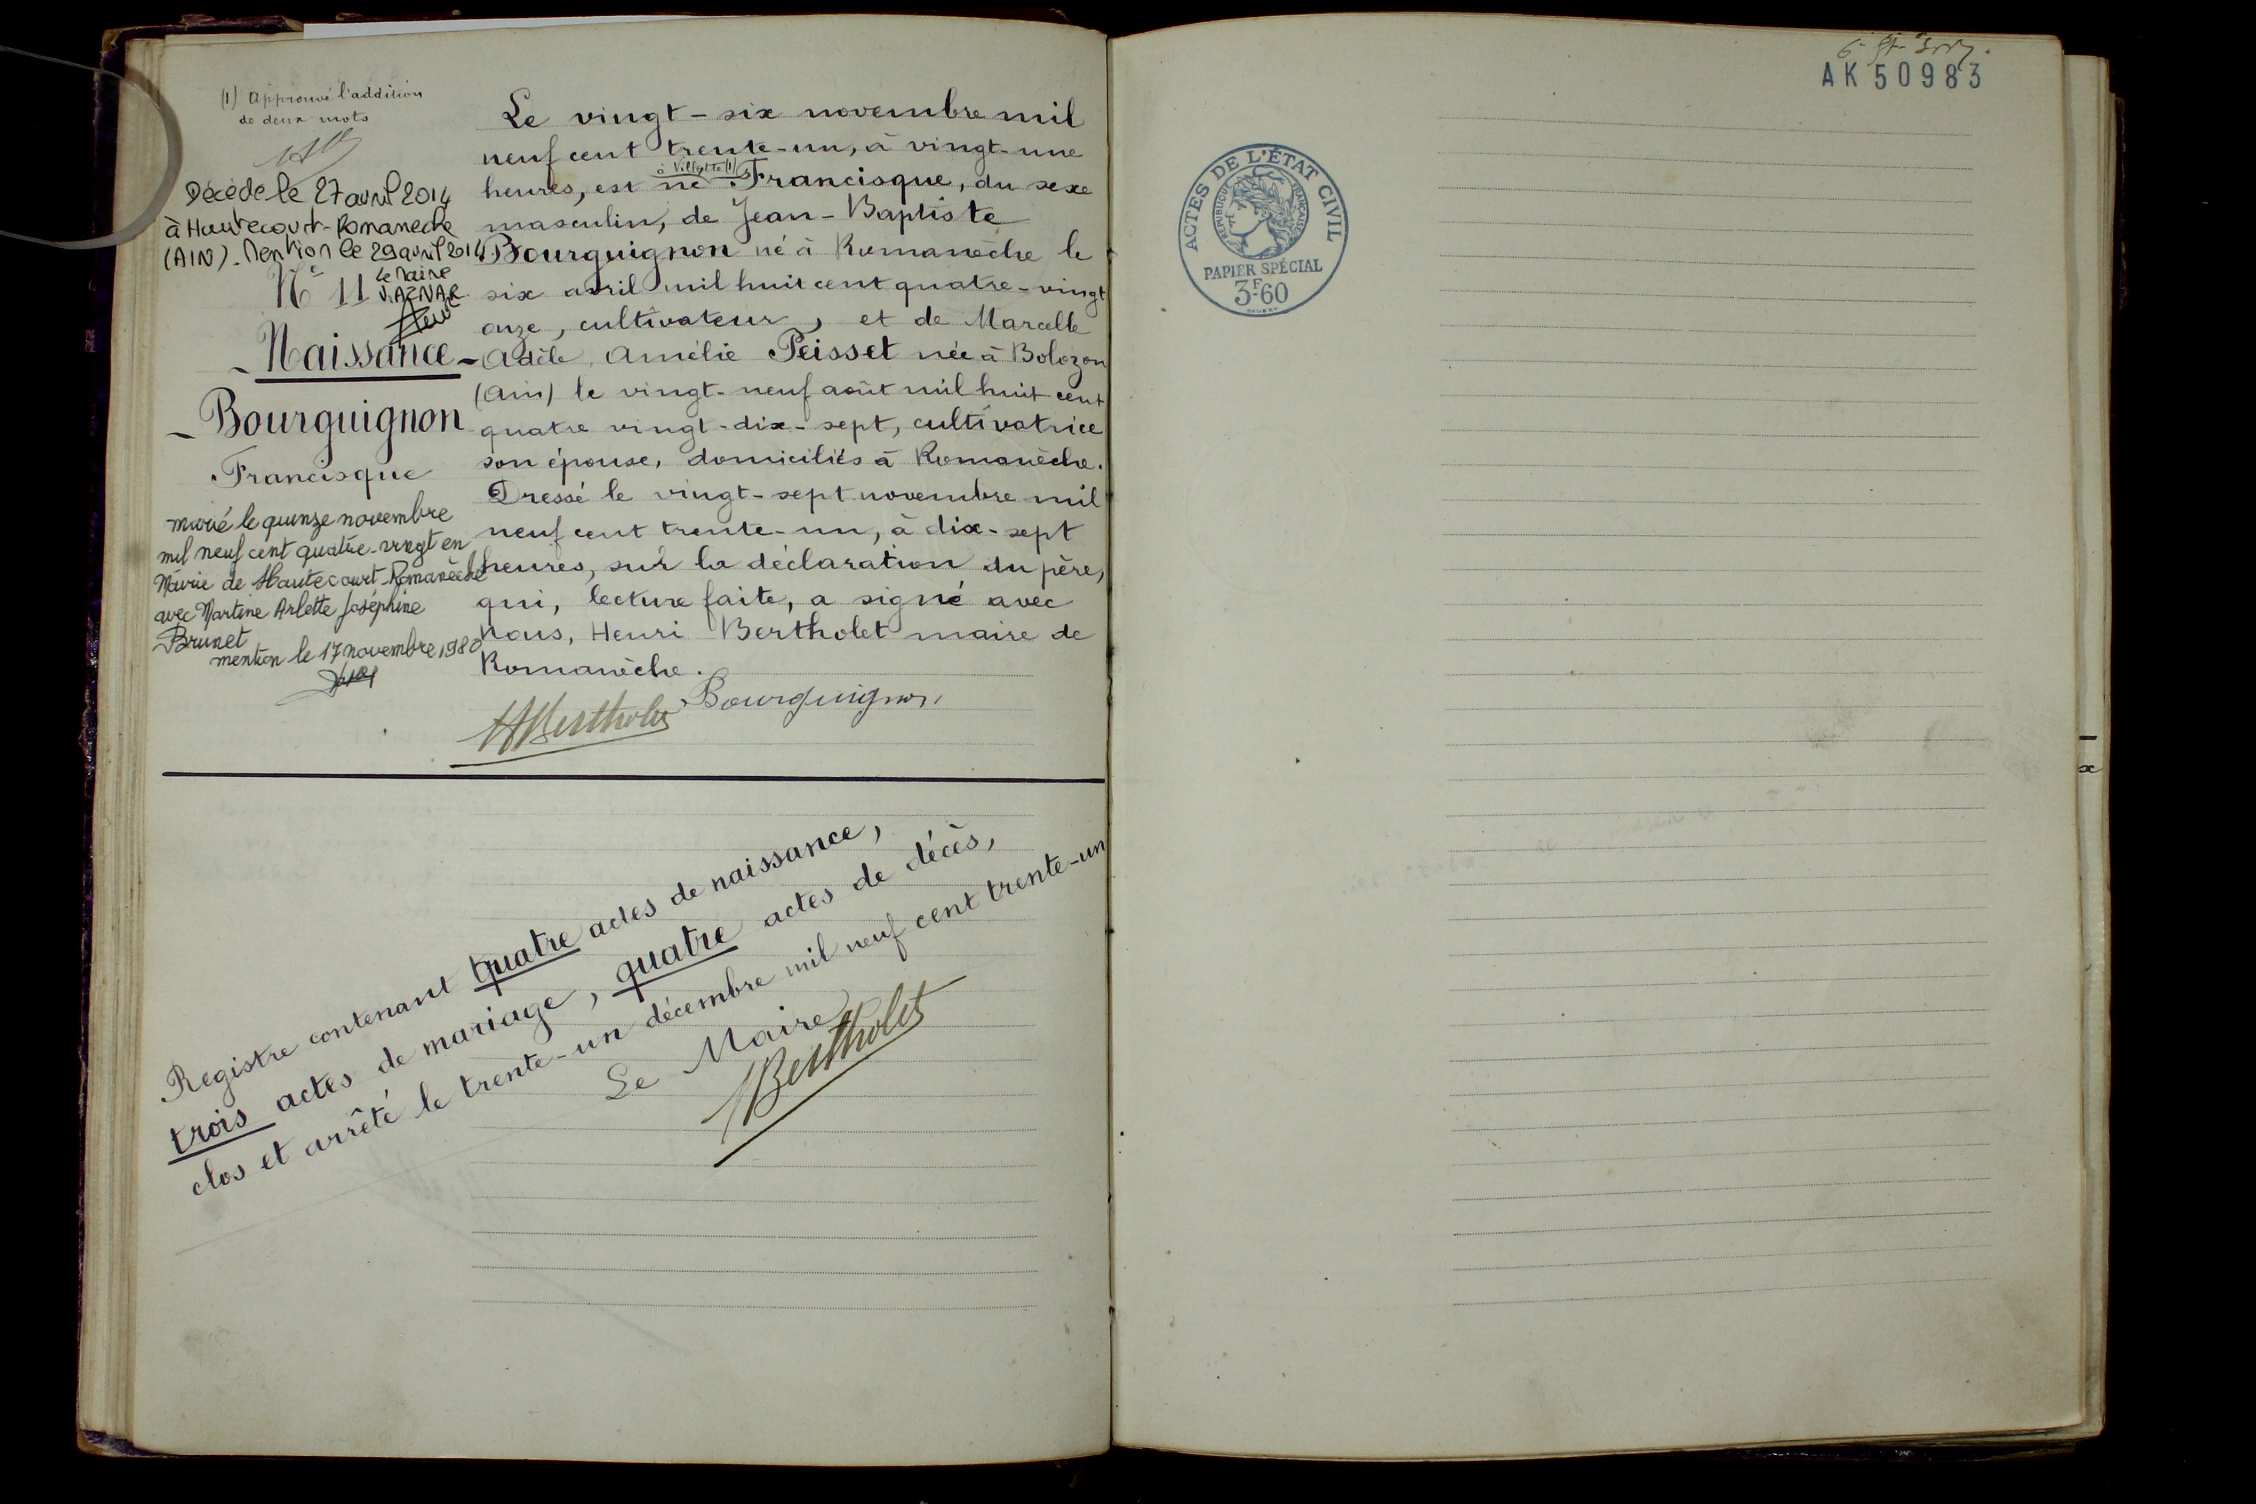 (1) Approuvé l'addition
de deux mots
Décédé le 27 avril 2014
à Hautecourt-Romanèche
(AIN). Mention le 29 avril 2014.
Le Maire
V. AZNAR
N° 11
- Naissance -
- Bourguignon
Francisque
marié le quinze novembre
mil neuf cent quatre-vingt en
Mairie de Hautecourt-Romanèche
avec Martine Arlette Joséphine
Brunet
mention le 17 novembre 1980
Le vingt-six novembre mil
neuf cent trente-un, à vingt-une
à Villette (1)
heures, est né Francisque, du sexe
masculin, de Jean-Baptiste
Bourguignon né à Romanèche le
six avril mil huit cent quatre-vingt
onze, cultivateur, et de Marcelle
Adèle Amélie Peisset née à Bolozon
(Ain) le vingt-neuf août mil huit cent
quatre vingt-dix-sept, cultivatrice
son épouse, domiciliés à Romanèche.
Dressé le vingt-sept novembre mil
neuf cent trente-un, à dix-sept
heures, sur la déclaration du père,
qui, lecture faite, a signé avec
Nous, Henri Bertholet maire de
Romanèche.
Bourguignon
HBertholet
Registre contenant quatre actes de naissance,
trois actes de mariage, quatre actes de décès,
clos et arrêté le trente-un décembre mil neuf cent trente-un
Le Maire
HBertholet
AK 50983
ACTES DE L'ÉTAT CIVIL
RÉPUBLIQUE FRANÇAISE
PAPIER SPÉCIAL
3F60